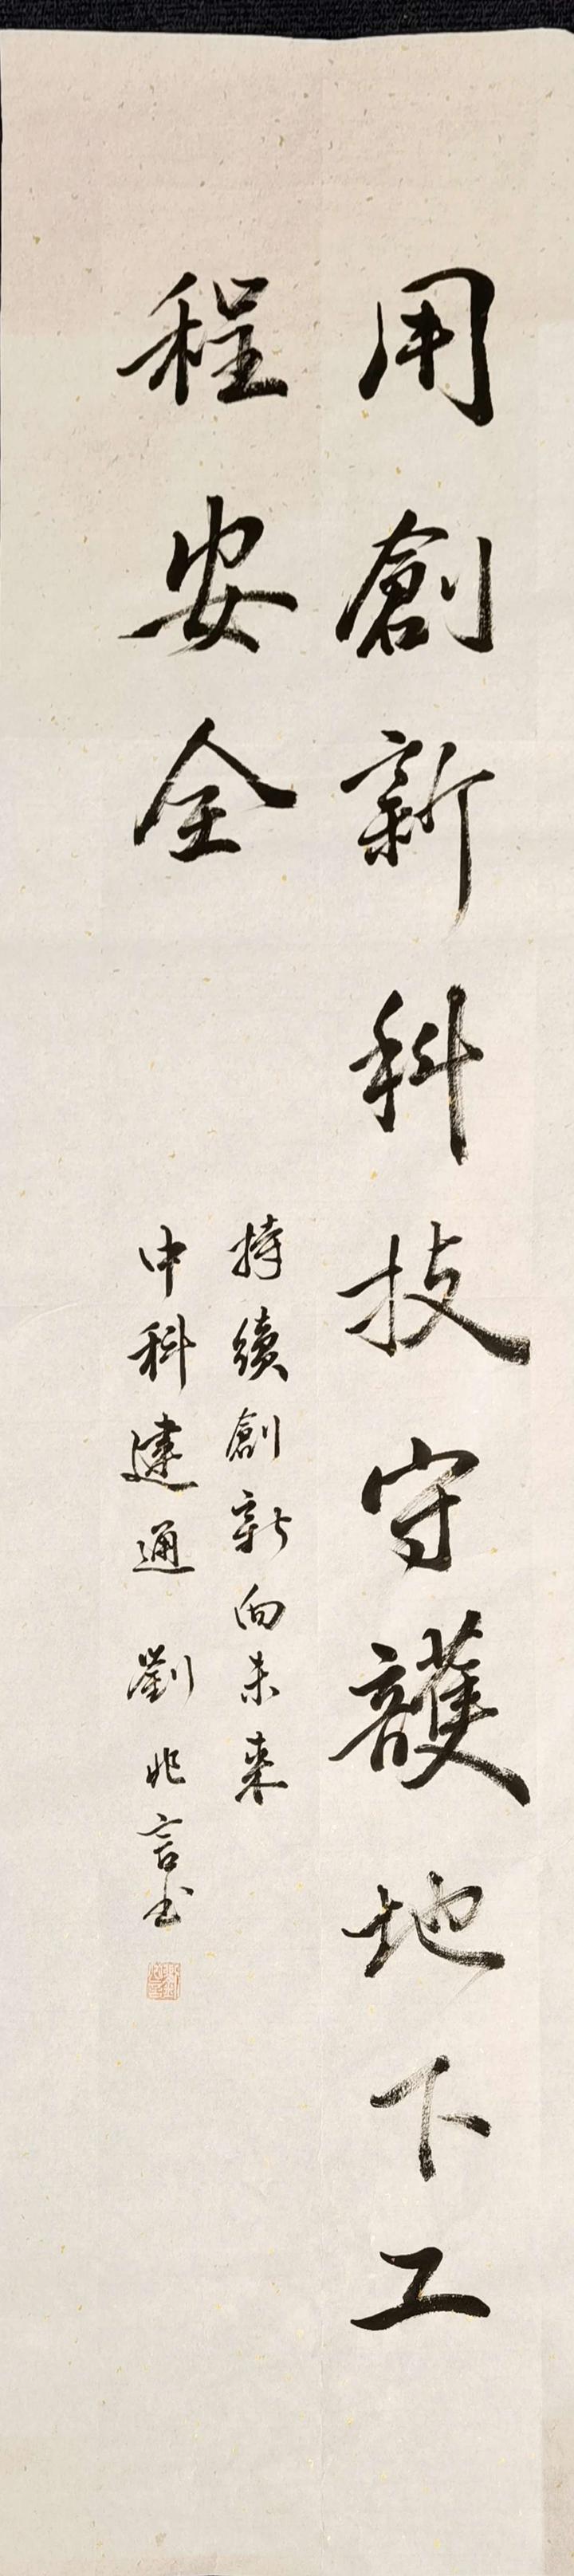 用創新科技守護地下工
程安全
持續創新向未来
中科建通 劉兆言书